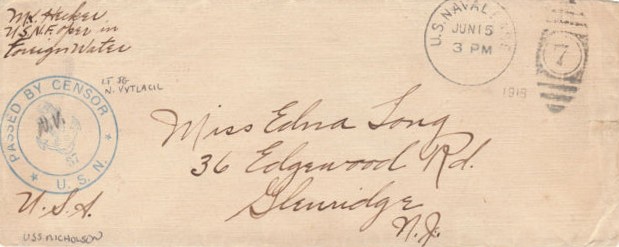 M.L. Hecker
U.S.N.F. Oper in
Foreign Water
U.S. NAVAL
JUN 15
3 PM
1918
7
LT SG
N. VYTLACIL
PASSED BY CENSOR
N.V.
U.S.N.
Miss Edna Long
36 Edgewood Rd.
Glenridge
N.J.
U.S.A.
USS NICHOLSON